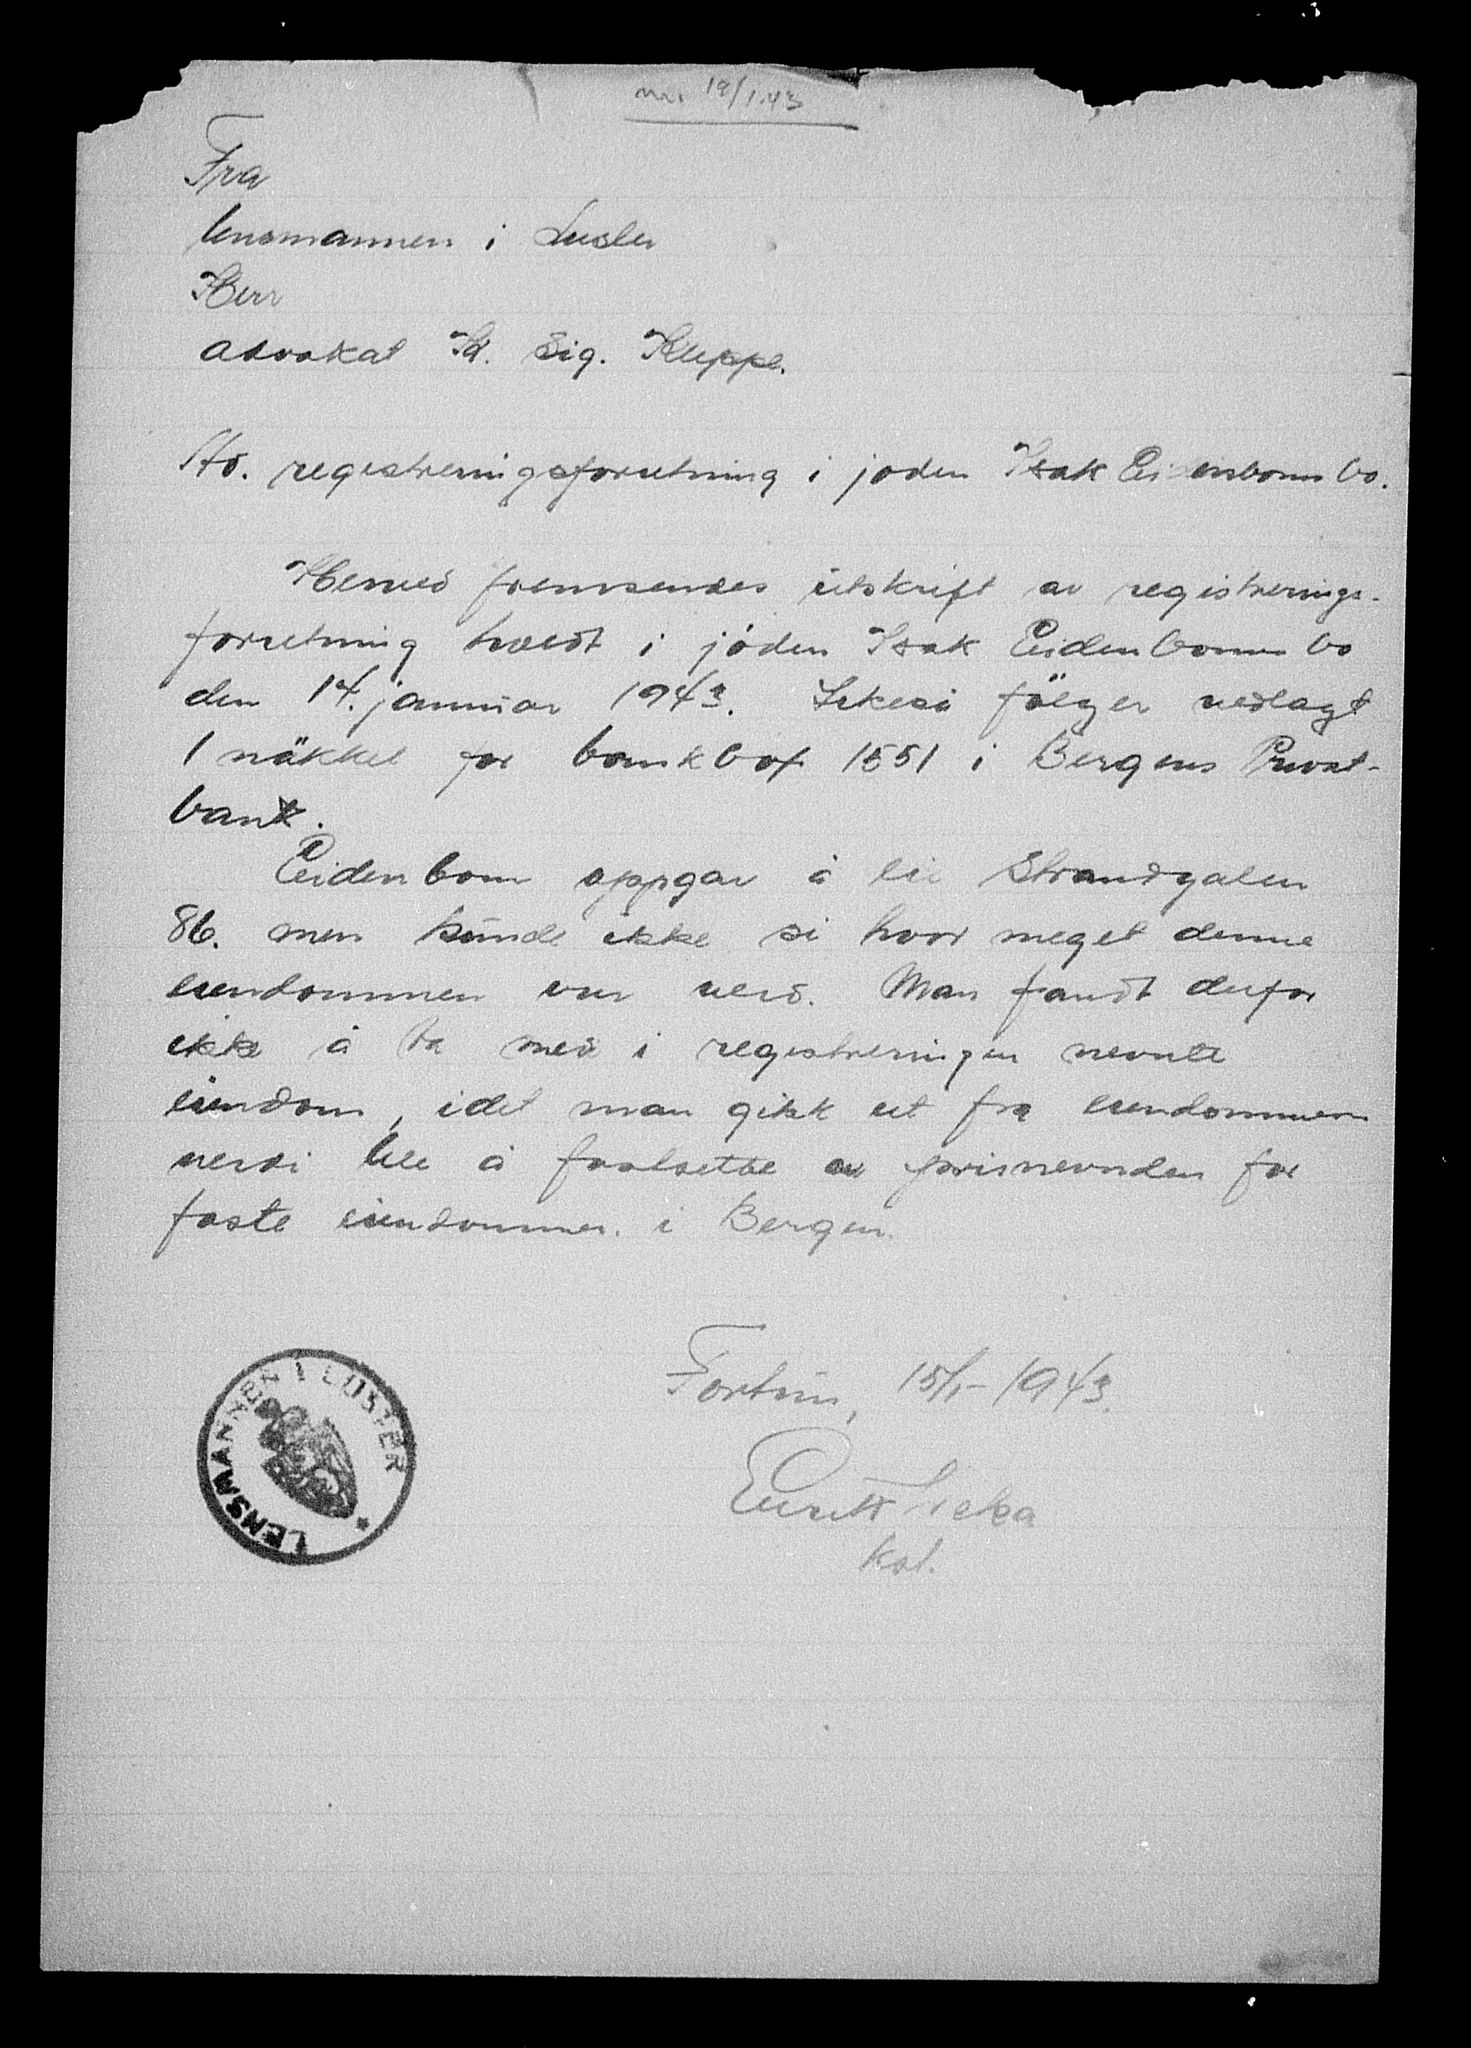 18/1.43
Fra
lensmannen i Luster
Herr
advokat Kr. Sig. Kleppe.
Ad. registreringsforretning i jøden Isak Eidenbom bo.
Hermed fremsendes utskrift av registrerings-
forretning hvedt i jøden Isak Eidenboms bo
den 14. januar 1943. Likeså følger vedlagt
1 nøkkel for bankbox 1551 i Bergens Privat-
bank.
Eidenbom oppgav å eie Strandgaten
86. men kunde ikke si hvor meget denne
eiendommen var verd. Man fandt derfor
ikke å ta med i registreringen nevnte
eiendom, idet man gikk ut fra eiendommens
verdi ble å fastsette av prisnevnden for
faste eiendommer i Bergen.
Fortun, 15/1-1943.
LENSMANNEN I LUSTER